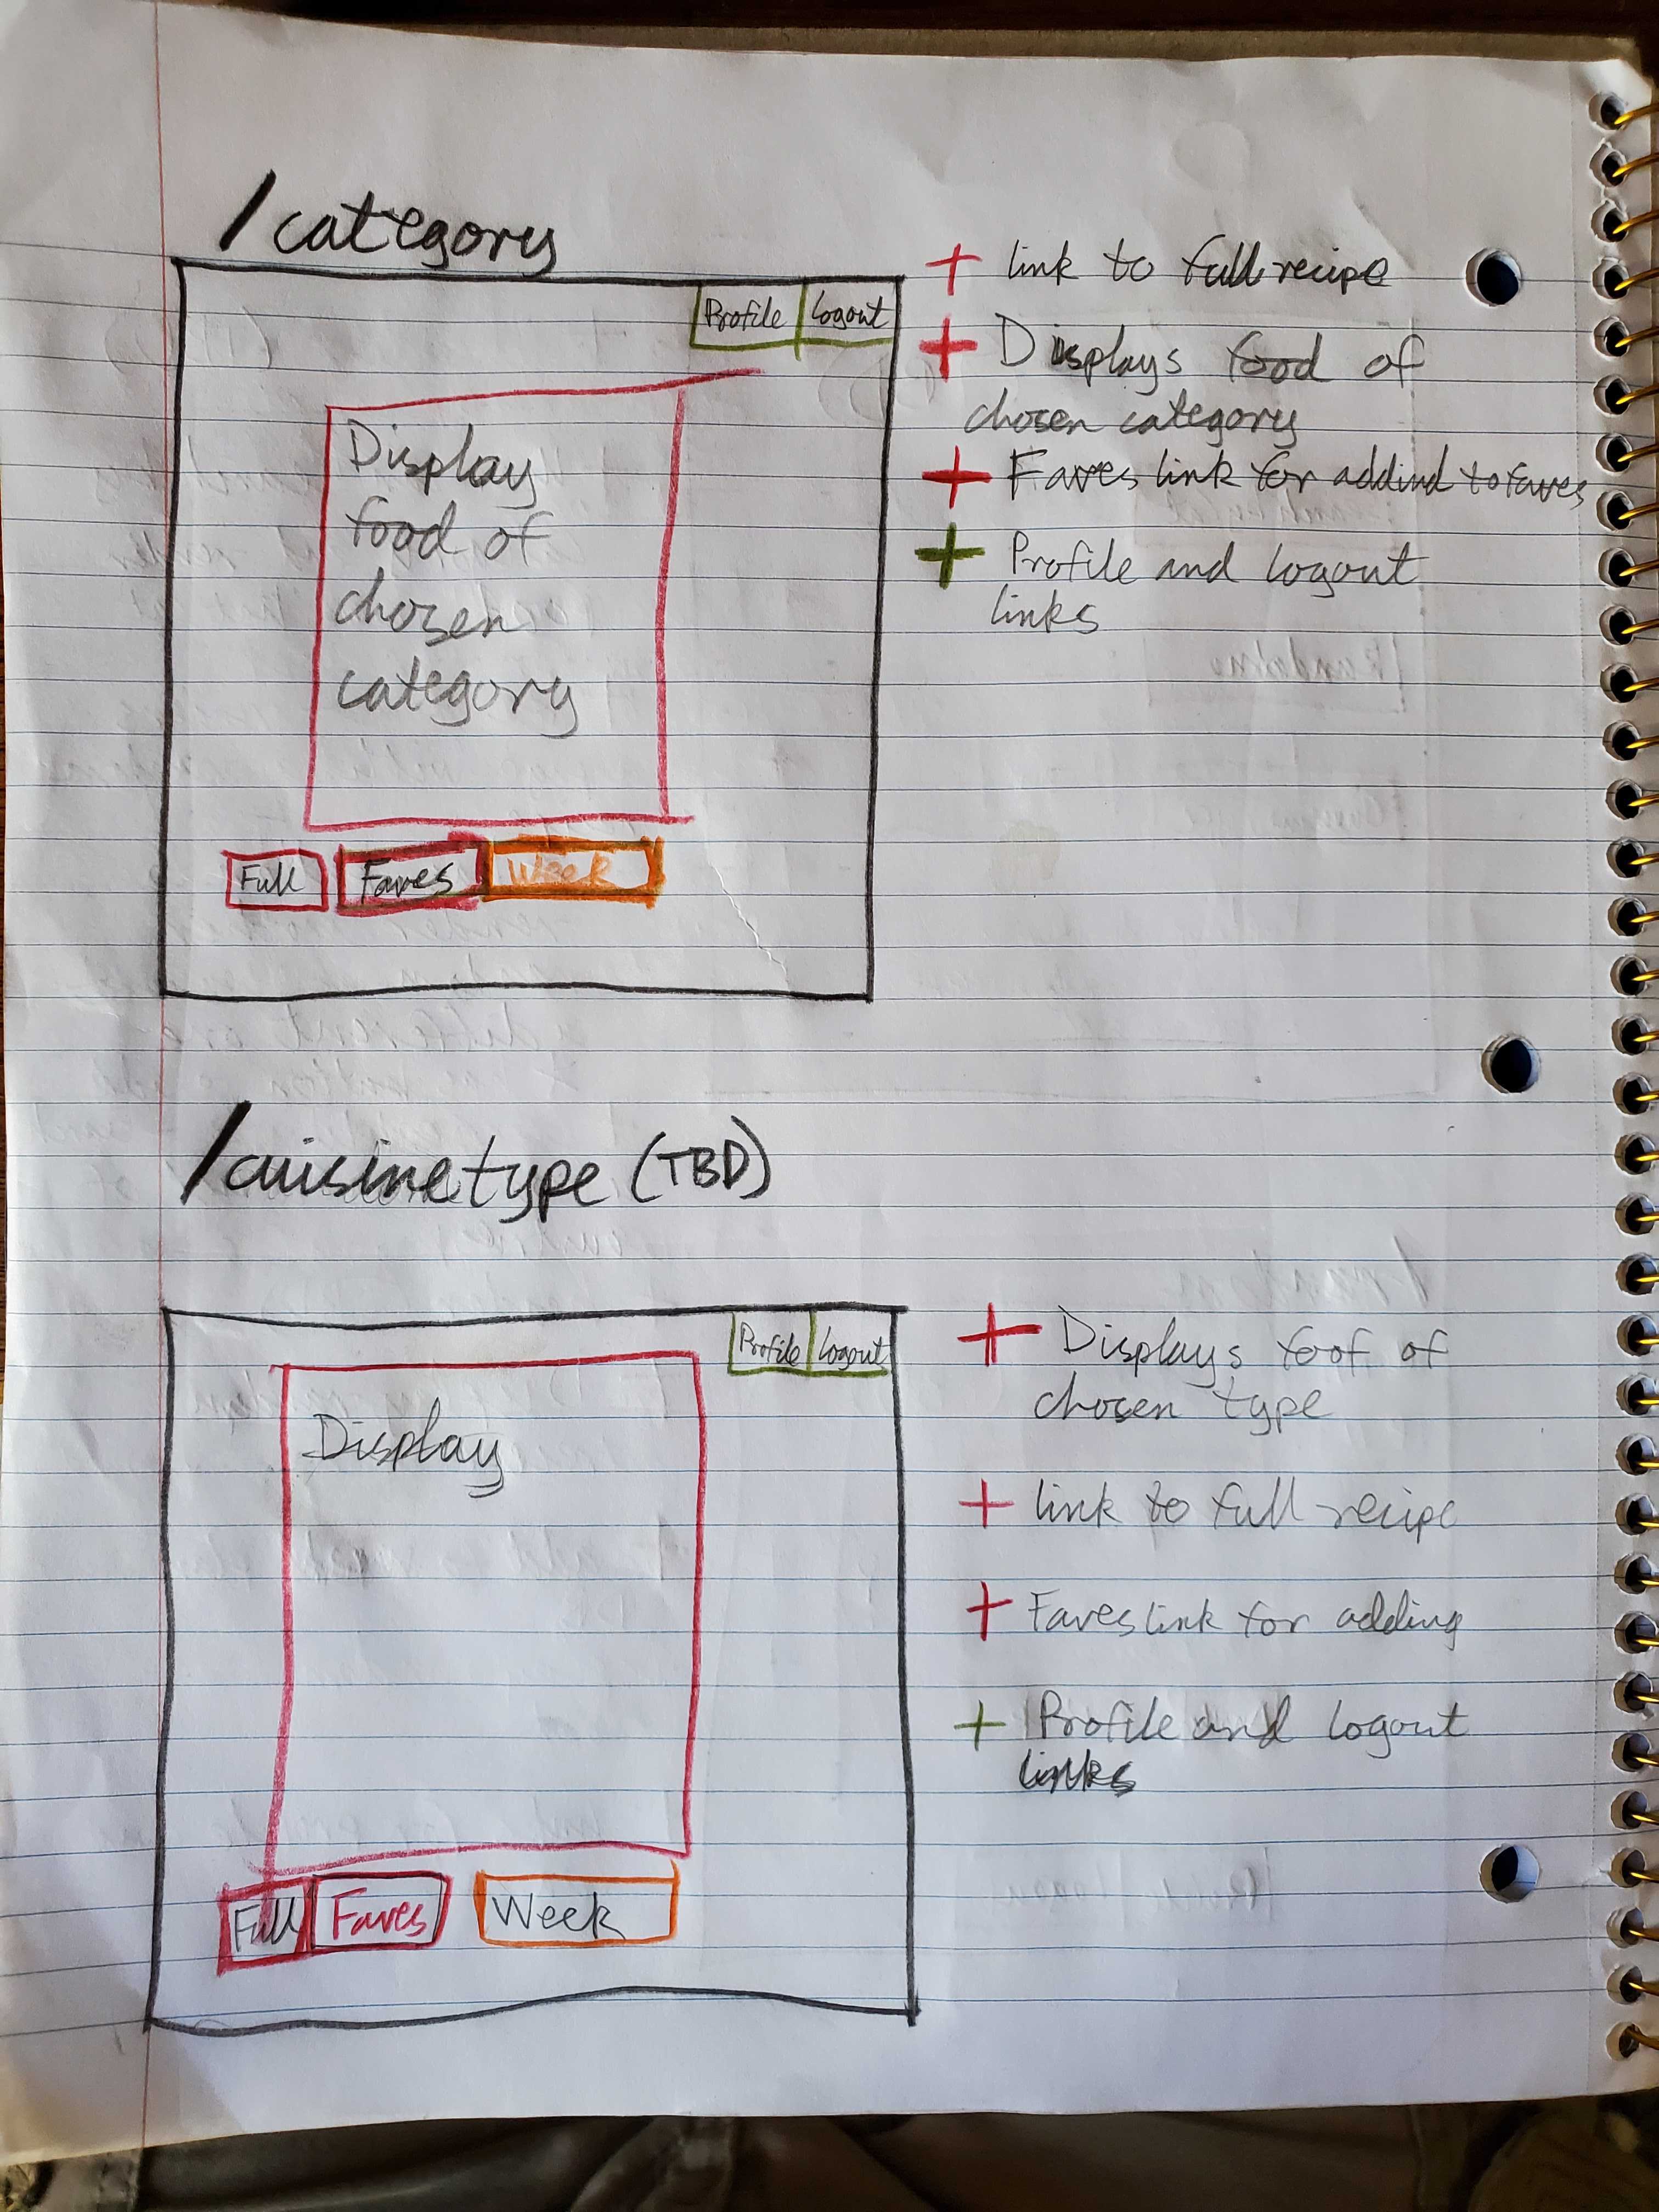 /category
Profile Logout
Display
food of
chosen
category
Full Faves Week
+ link to full recipe
+ Displays food of
chosen category
+ Faves link for addind to faves
+ Profile and logout
links
/cuisinetype (TBD)
Profile Logout
Display
Full Faves Week
+ Displays foof of
chosen type
+ link to full recipe
+ Faves link for adding
+ Profile and logout
links